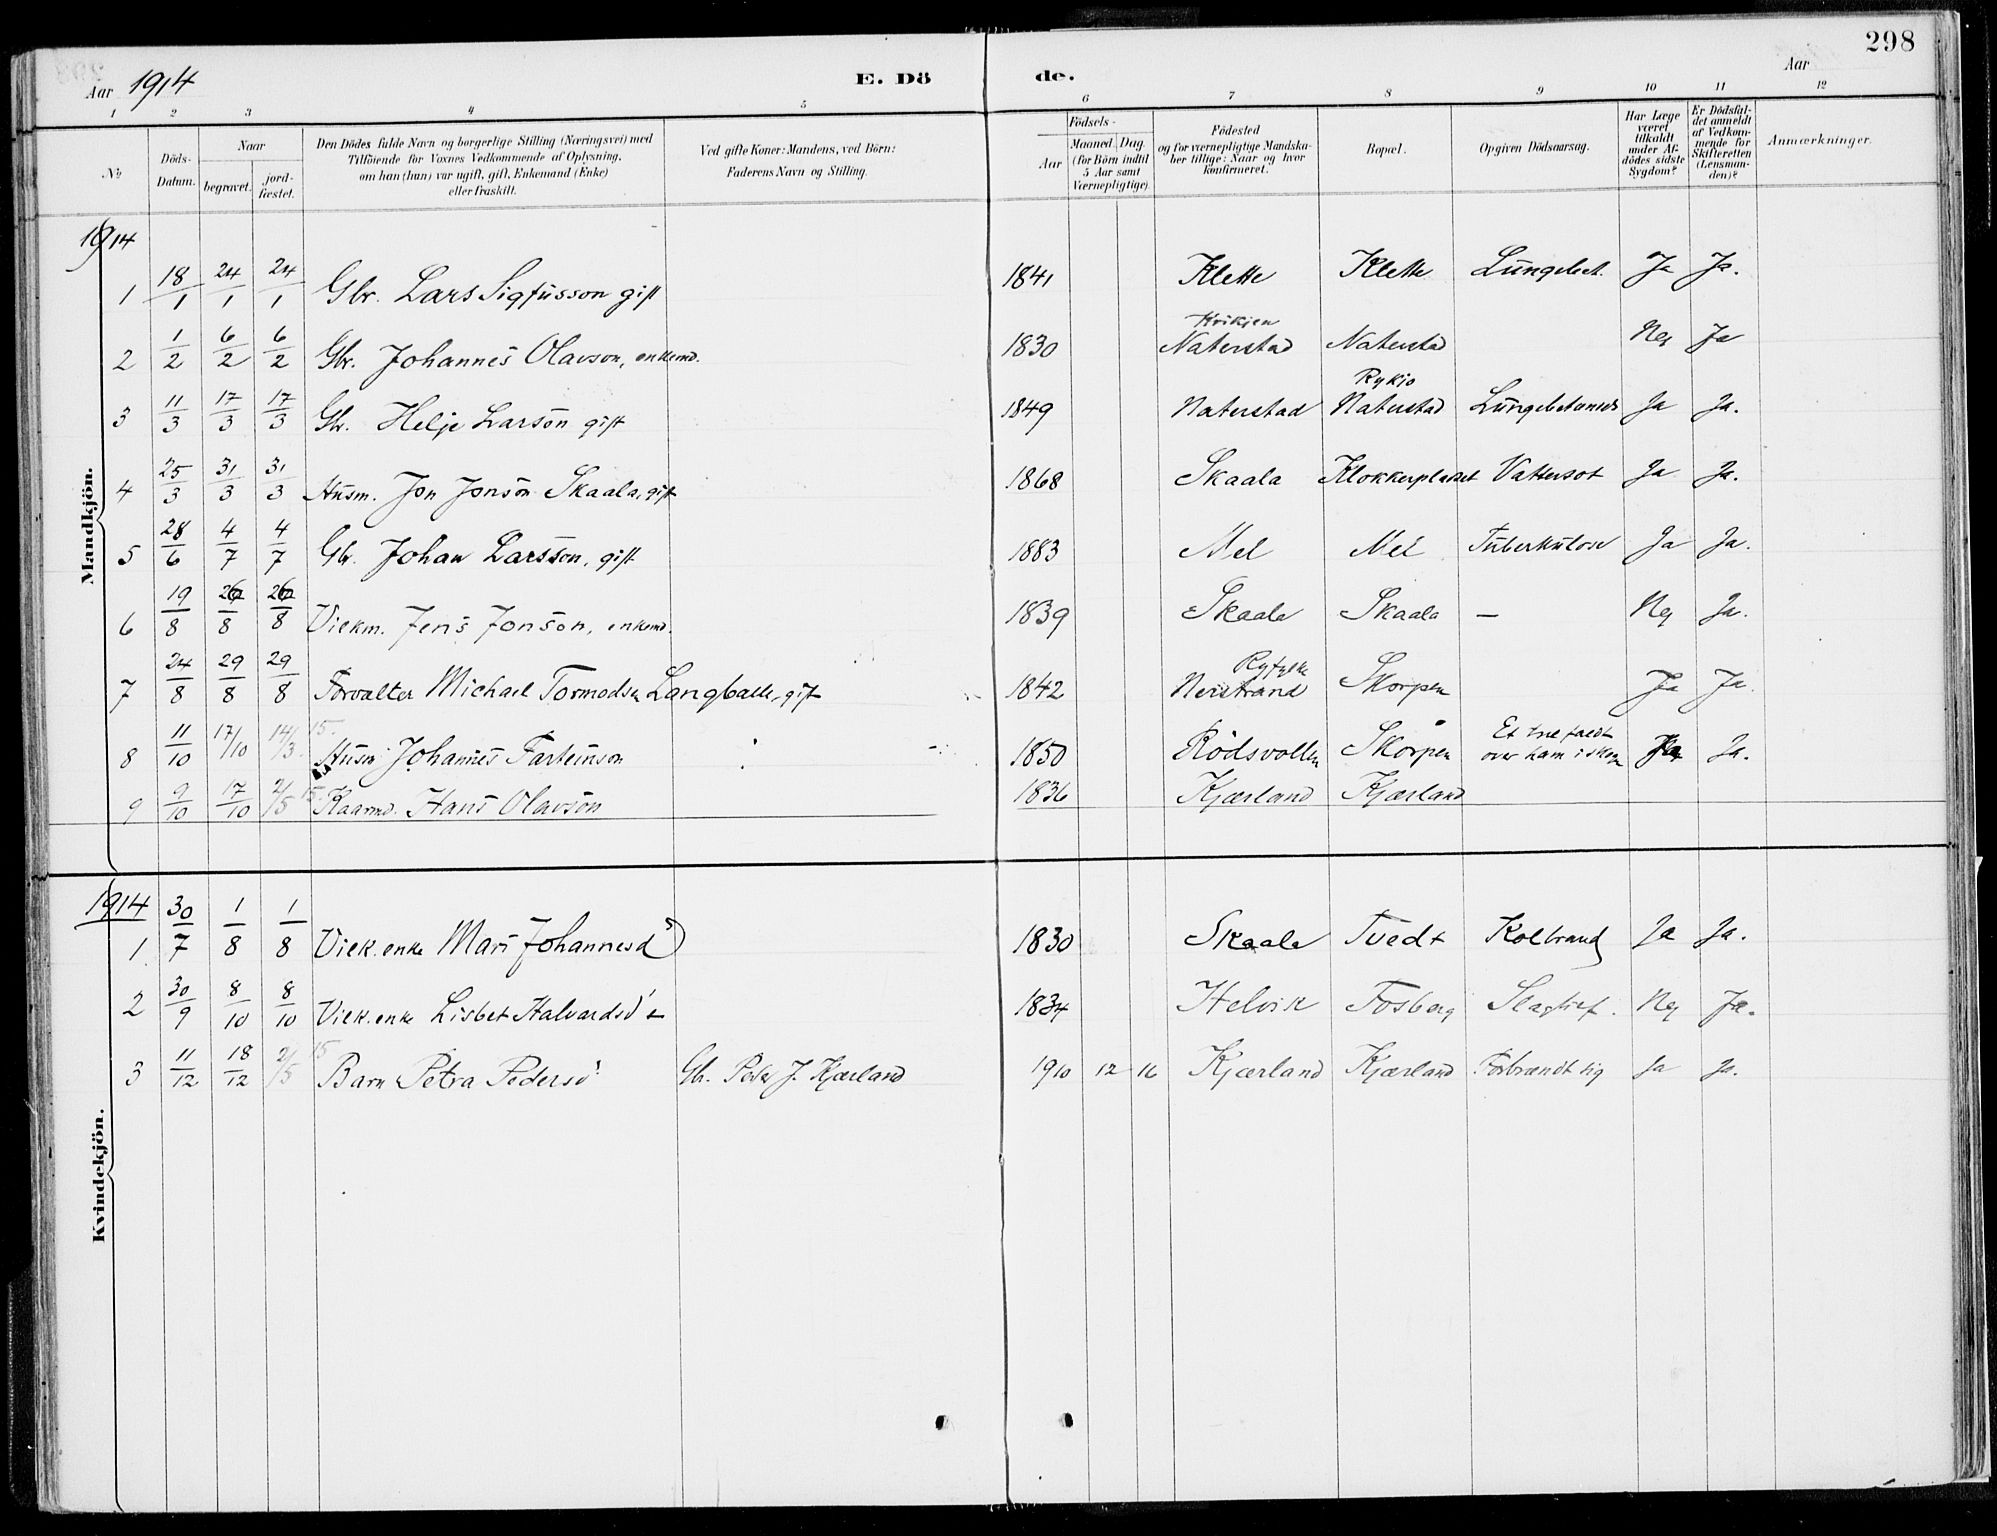 298
Aar 1914 E. Dö de. Aar
1 2 3 4 5 6 7 8 9 10 11 12
No
Döds-Datum.
Naar
begravet.
jord-fæstet.
Den Dödes fulde Navn og borgerlige Stilling (Næringsvei) med
Tilföiende for Voxnes Vedkommende af Oplysning,
om han (hun) var ugift, gift, Enkemand (Enke)
eller fraskilt.
Ved gifte Koner: Mandens, ved Börn:
Faderens Navn og Stilling.
Födsels-
Aar
Maaned. Dag.
(for Börn indtil
5 Aar samt
Værnepligtige).
Födested
og for værnepligtige Mandska-
ber tillige: Naar og hvor
konfirmeret.
Bopæl.
Opgiven Dödsaarsag.
Har Læge
været
tilkaldt
under Af-
dödes sidste
Sygdom?
Er Dödsfal-
det anmeldt
af Vedkom-
mende for
Skifteretten
(Lensman-
den)?
Anmærkninger.
Mandkjön.
1914
1 18/1 24/1 24/1 Gbr. Lars Sigfusson gift 1841 Klette Klette Lungebet. Ja Ja.
2 1/2 6/2 6/2 Gbr. Johannes Olavson, enkemd. 1830 Kvikjen Naterstad Naterstad Nei Ja
3 11/3 17/3 17/3 Gbr. Helje Larson gift 1849 Naterstad Rykjo Naterstad Lungebetændels Ja Ja.
4 25/3 31/3 31/3 Husm. Jon Jonson Skaala, gift 1868 Skaala Klokkerpladset Vattersot Ja Ja.
5 28/6 4/7 4/7 Gbr. Johan Larsson, gift 1883 Mel Mel Tuberkulose Ja Ja.
6 19/8 26/8 26/8 Vilkm. Jens Jonson, enkemd. 1839 Skaala Skaala — Nei Ja.
7 24/8 29/8 29/8 Forvalter Michael Tormodsen Langballe, gift 1842 Ryfylke Nerstrand Skorpen Ja Ja.
8 11/10 17/10 14/3 15. Husm Johannes Farteinson 1850 Rödsvollen Skorpen Et tre faldt over ham i skogen Ja.
9 9/10 17/10 2/5 15. Kaarmd. Hans Olavson 1836 Kjærland Kjærland
Kvindekjön.
1914
1 30/7 1/8 1/8 Vilk. enke Mari Johannesd 1830 Skaala Tvedt Kolbrand Ja Ja.
2 30/9 8/10 8/10 Vilk. enke Lisbet Halvardsd 1834 Helvik Fosberg Slagtilf. Nei Ja.
3 11/12 18/12 2/5 15 Barn Petra Pedersd Gbr. Peder J. Kjærland 1910 12 16 Kjærland Kjærland Forbrændt sig Ja Ja.